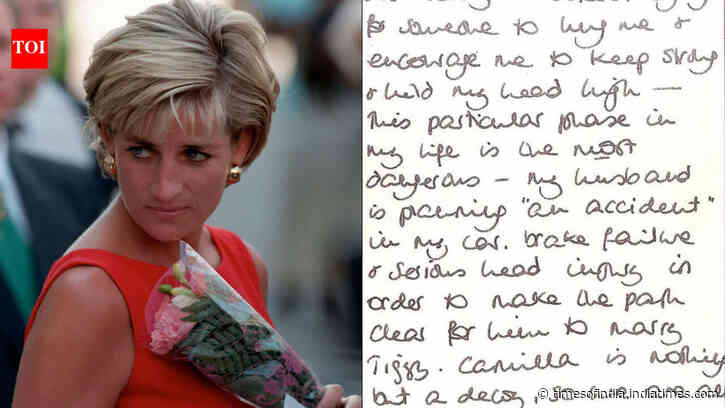 TOI
for someone to hug me &
encourage me to keep strong
& hold my head high —
This particular phase in
my life is the most
dangerous — my husband
is planning "an accident"
in my car. brake failure
& serious head injury in
order to make the path
clear for him to marry
Tiggy. Camilla is nothing
but a decoy,
© timesofindia.indiatimes.com